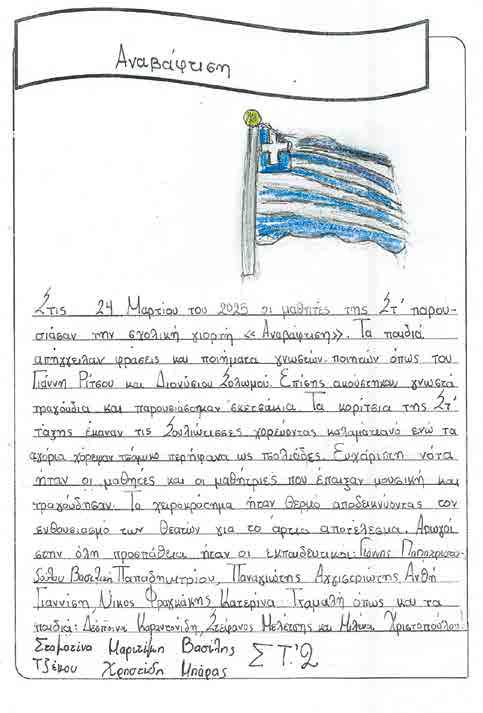 Αναβάφτιση
Στις 24 Μαρτίου του 2025 οι μαθητές της Στ' παρου-
σίασαν την σχολική γιορτή «Αναβάφτιση». Τα παιδιά
απήγγειλαν φράσεις και ποιήματα γνωστών ποιητών όπως του
Γιάννη Ρίτσου και Διονύσιου Σολωμού. Επίσης ακούστηκαν γνωστά
τραγούδια και παρουσιάστηκαν σκετσάκια. Τα κορίτσια της Στ'
τάξης έκαναν τις Σουλιώτισσες χορεύοντας καλαματιανό ενώ τα
αγόρια χόρεψαν τσάμικο περήφανα ως τσολιάδες. Ευχάριστη νότα
ήταν οι μαθητές και οι μαθήτριες που έπαιξαν μουσική και
τραγούδησαν. Το χειροκρότημα ήταν θερμό αποδεικνύοντας τον
ενθουσιασμό των θεατών για το άρτιο αποτέλεσμα. Αρωγοί
στην όλη προσπάθεια ήταν οι εκπαιδευτικοί: Γιάννης Παπαχριστο-
δούλου Βασιλική Παπαδημητρίου, Παναγιώτης Αγγιστριώτης, Ανθή
Γιαννίση, Νίκος Φραγκάκης Κατερίνα Τταμαλή όπως και τα
παιδιά: Δέσποινα Καραντονίδη, Στέφανος Μελέτσης και Μιλένα Χριστοπούλου!
Σταματίνα Μαριτίμη Βασίλης ΣΤ.'2
Τζέκου Χρηστίδη Μπάρας